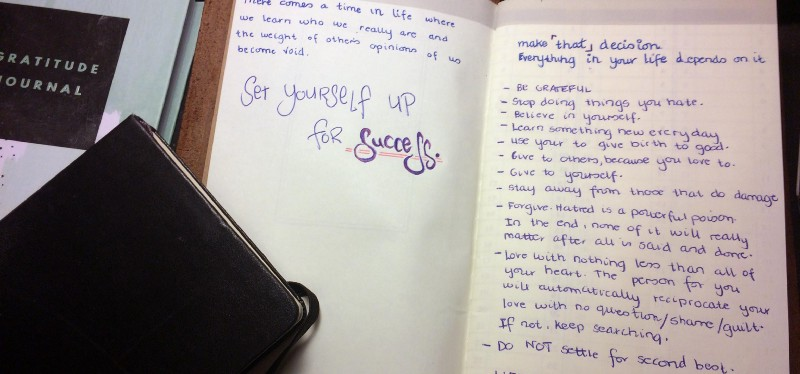 GRATITUDE
JOURNAL
There comes a time in life where
we learn who we really are and
the weight of others opinions of us
become void.
Set yourself up
for success.
make "that" decision.
Everything in your life depends on it
- BE GRATEFUL
- Stop doing things you hate.
- Believe in yourself.
- Learn something new everyday
- use your to give birth to good.
- Give to others, because you love to.
- Give to yourself.
- stay away from those that do damage
- Forgive. Hatred is a powerful poison.
In the end, none of it will really
matter after all is said and done.
- Love with nothing less than all of
your heart. The person for you
will automatically reciprocate your
love with no question/shame/guilt.
If not, keep searching.
- DO NOT settle for second best.